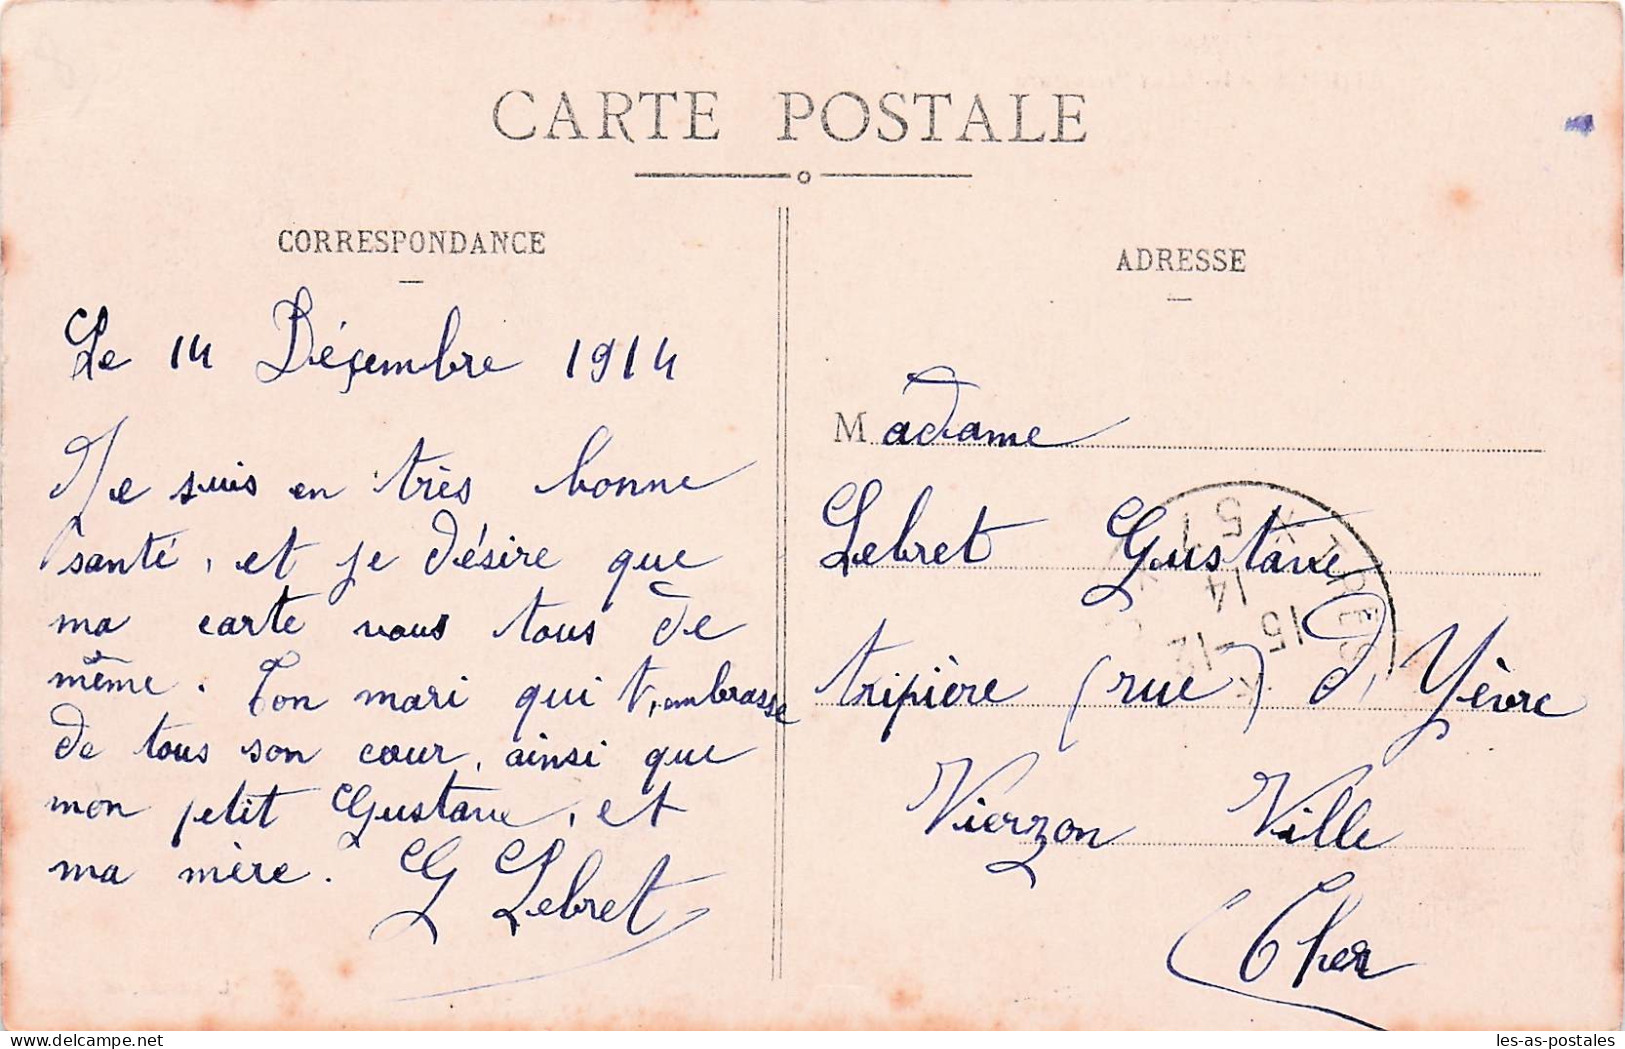 CARTE POSTALE
CORRESPONDANCE
Le 14 Déçembre 1914
Je suis en très bonne
santé, et je désire que
ma carte vous tous de
même. Ton mari qui t, embrasse
de tous son cœur, ainsi que
mon petit Gustave, et
ma mère. G Lebret
ADRESSE
Madame
Lebret Gustave
tripière (rue) d, Yèvre
Vierzon Ville
Cher
15-12
14
delcampe.net
les-as-postales